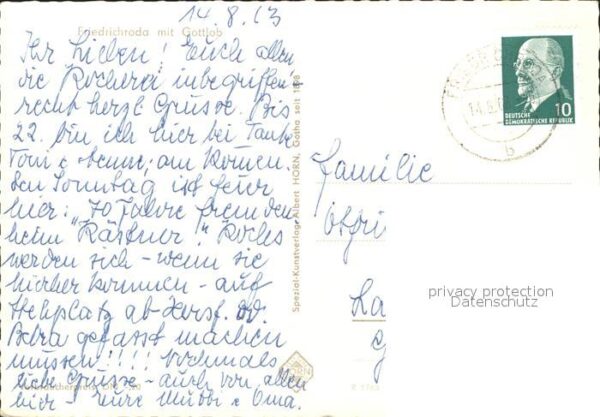 14.8.63
Friedrichroda mit Gottlob
Ihr Lieben! Euch allen
die Kocherei inbegriffen
recht herzl. Grüsse. Bis
22. bin ich hier bei Tante
Toni am kommen-
den Sonntag ist Feier
hier: 70 Jahre Fremden-
heim "Kästner"! Kochs
werden sich - wenn sie
hierher kommen - auf
Stehplatz ab Hersf. od.
Bebra gefasst machen
müssen!!!! Nochmals
liebe Grüsse - auch von allen
hier - Eure Mutti + Oma.
Spezial-Kunstverlag Albert HORN, Gotha seit 1898
HORN
DEUTSCHE
DEMOKRATISCHE REPUBLIK
10
14.8.
b
Familie
La
privacy protection
Datenschutz